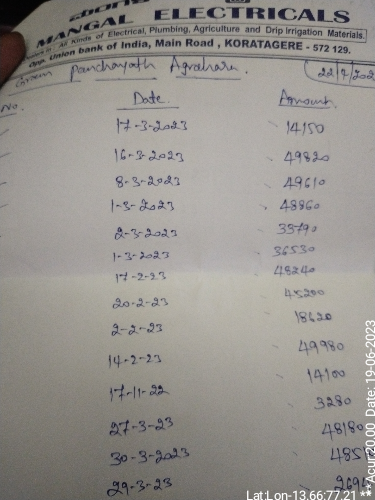 MANGAL ELECTRICALS
All Kinds of Electrical, Plumbing, Agriculture and Drip Irrigation Materials.
Opp. Union bank of India, Main Road, KORATAGERE - 572 129.
Panchayath Agrahara.
No. Date. Amount.
17-3-2023 14150
16-3-2023 49820
8-3-2023 49610
1-3-2023 48860
2-3-2023 33790
1-3-2023 36530
17-2-23 48240
20-2-23 45200
2-2-23 18620
14-2-23 49980
17-11-22 14100
3280
27-3-23 48180
30-3-2023
29-3-23
Lat:Lon-13.66:77.21 *** Acur:20.00 Date: 19-06-2023